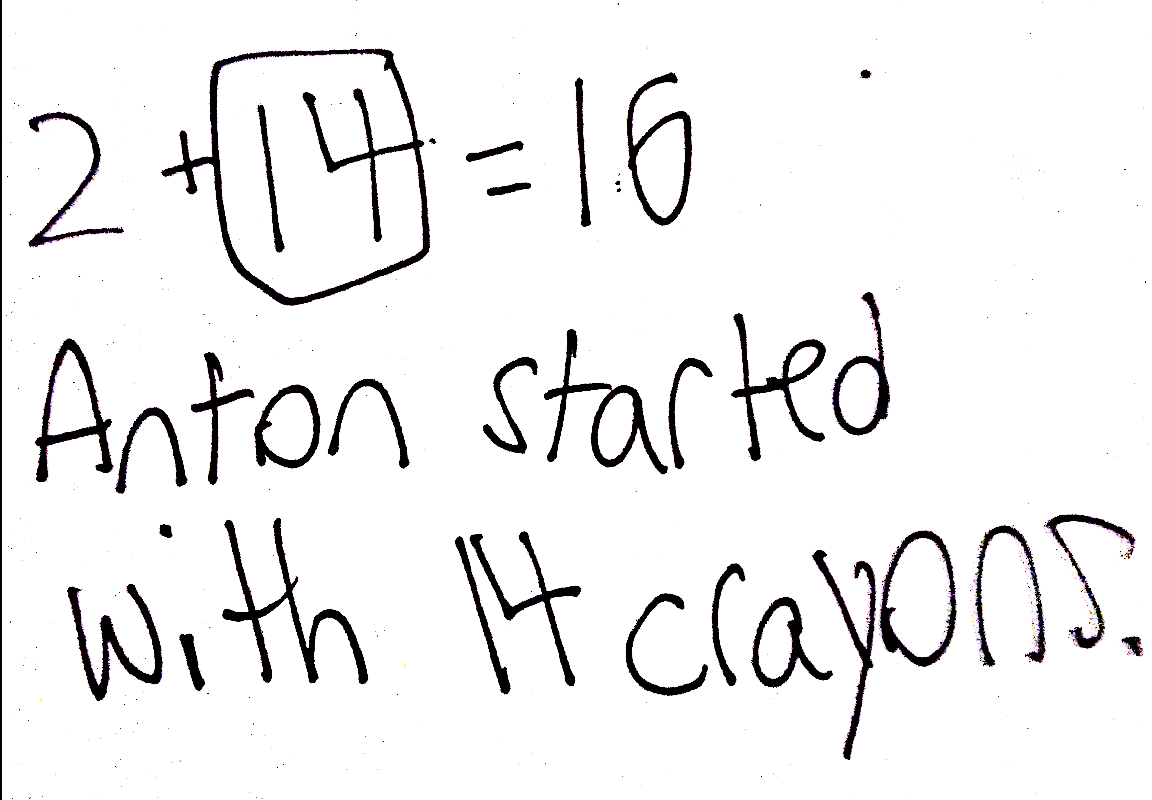 2 + 14 = 16
Anton started
with 14 crayons.